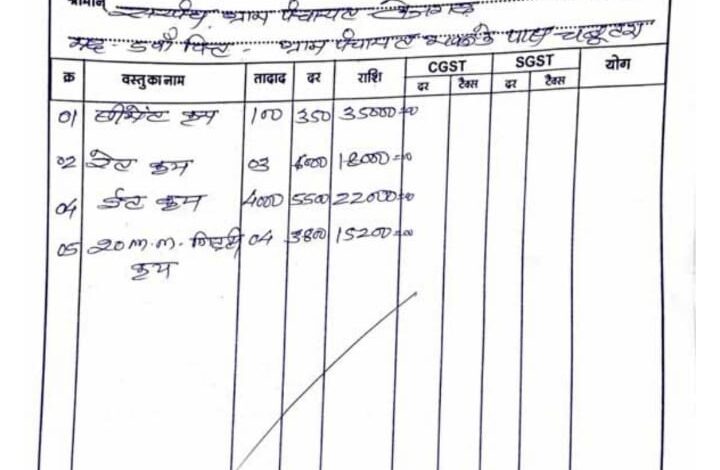 श्रीमान सरपंच, ग्राम पंचायत
मद- 5वाँ वित्त - ग्राम पंचायत के पास चबूतरा
क्र वस्तु का नाम तादाद दर राशि CGST SGST योग
दर टैक्स दर टैक्स
01 सीमेंट क्रय 100 350 35000=00
02 रेत क्रय 03 6000 18000=00
04 ईंट क्रय 4000 5500 22000=00
05 20 m.m. गिट्टी 04 3800 15200=00
क्रय